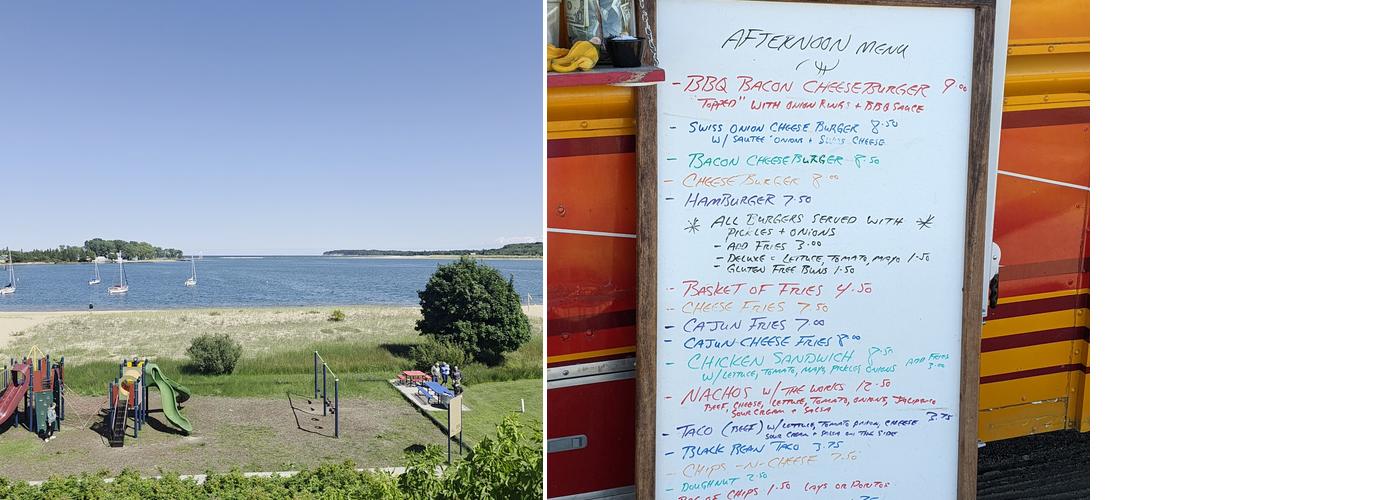 AFTERNOON MENU
- BBQ BACON CHEESEBURGER 9.00
"TOPPED" WITH ONION RINGS + BBQ SAUCE
- SWISS ONION CHEESE BURGER 8.50
W/ SAUTEE ONIONS + SWISS CHEESE
- BACON CHEESEBURGER 8.50
- CHEESE BURGER 8.00
- HAMBURGER 7.50
* ALL BURGERS SERVED WITH *
PICKLES + ONIONS
- ADD FRIES 3.00
- DELUXE = LETTUCE, TOMATO, MAYO 1.50
- GLUTEN FREE BUNS 1.50
- BASKET OF FRIES 4.50
- CHEESE FRIES 7.50
- CAJUN FRIES 7.00
- CAJUN CHEESE FRIES 8.00
- CHICKEN SANDWICH 8.50 ADD FRIES 3.00
W/ LETTUCE, TOMATO, MAYO, PICKLES ONIONS
- NACHOS W/ THE WORKS 12.50
BEEF, CHEESE, LETTUCE, TOMATO, ONIONS, JALAPENO
SOUR CREAM + SALSA
- TACO (BEEF) W/ LETTUCE, TOMATO, ONION, CHEESE 3.75
SOUR CREAM + SALSA ON THE SIDE
- BLACK BEAN TACO 3.75
- CHIPS -N- CHEESE 7.50
- DOUGHNUT 2.50
BAG OF CHIPS 1.50 LAYS OR DORITOS